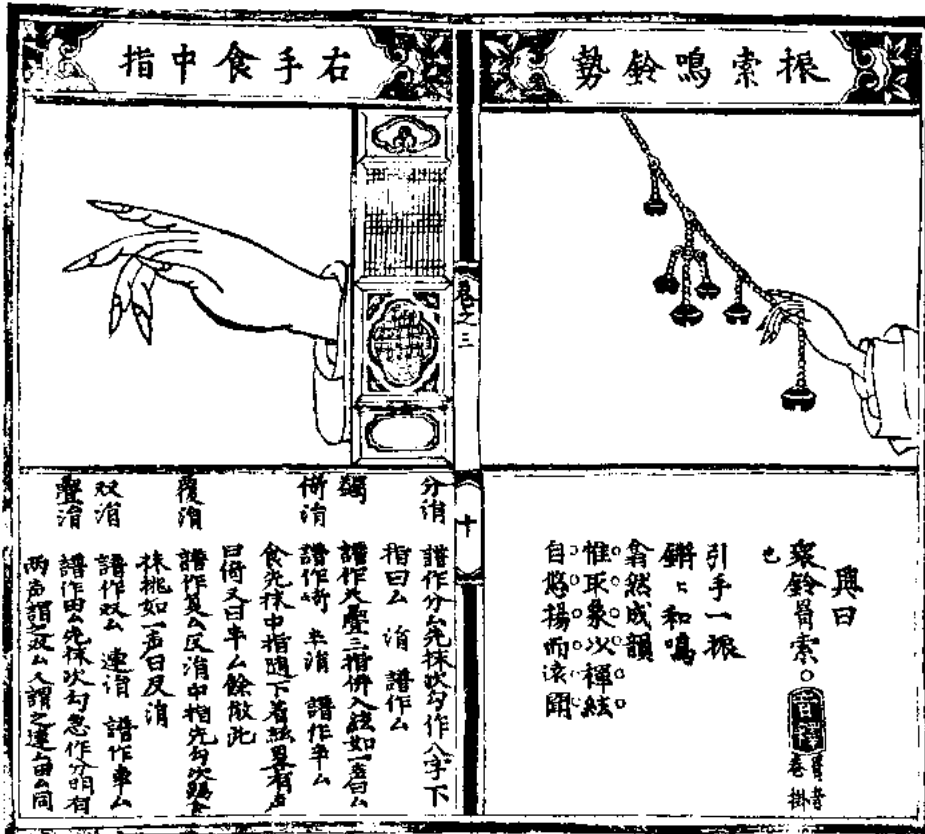 振索鳴鈴勢
興曰
衆鈴罥索。音釋罥音卷掛
也
引手一振
鏘々和鳴
翕然成韻
惟取象以揮絃
自悠揚而遠聞
卷之三
十
右手食中指
分涓 譜作分厶先抹次勾作八字下
指曰厶 涓 譜作厶
蠲 譜作 疊三指併入絃如一声曰厶
俻涓 譜作 半涓 譜作半厶
食先抹中指隨下着絃畧有声
曰俻又曰半厶餘倣此
覆涓 譜作 厶反涓中指先勾次踢食
抹挑如一声曰反涓
双涓 譜作双厶 連涓 譜作車厶
疊涓 譜作田厶先抹次勾急作分明有
两声謂之双厶又謂之連厶田厶同